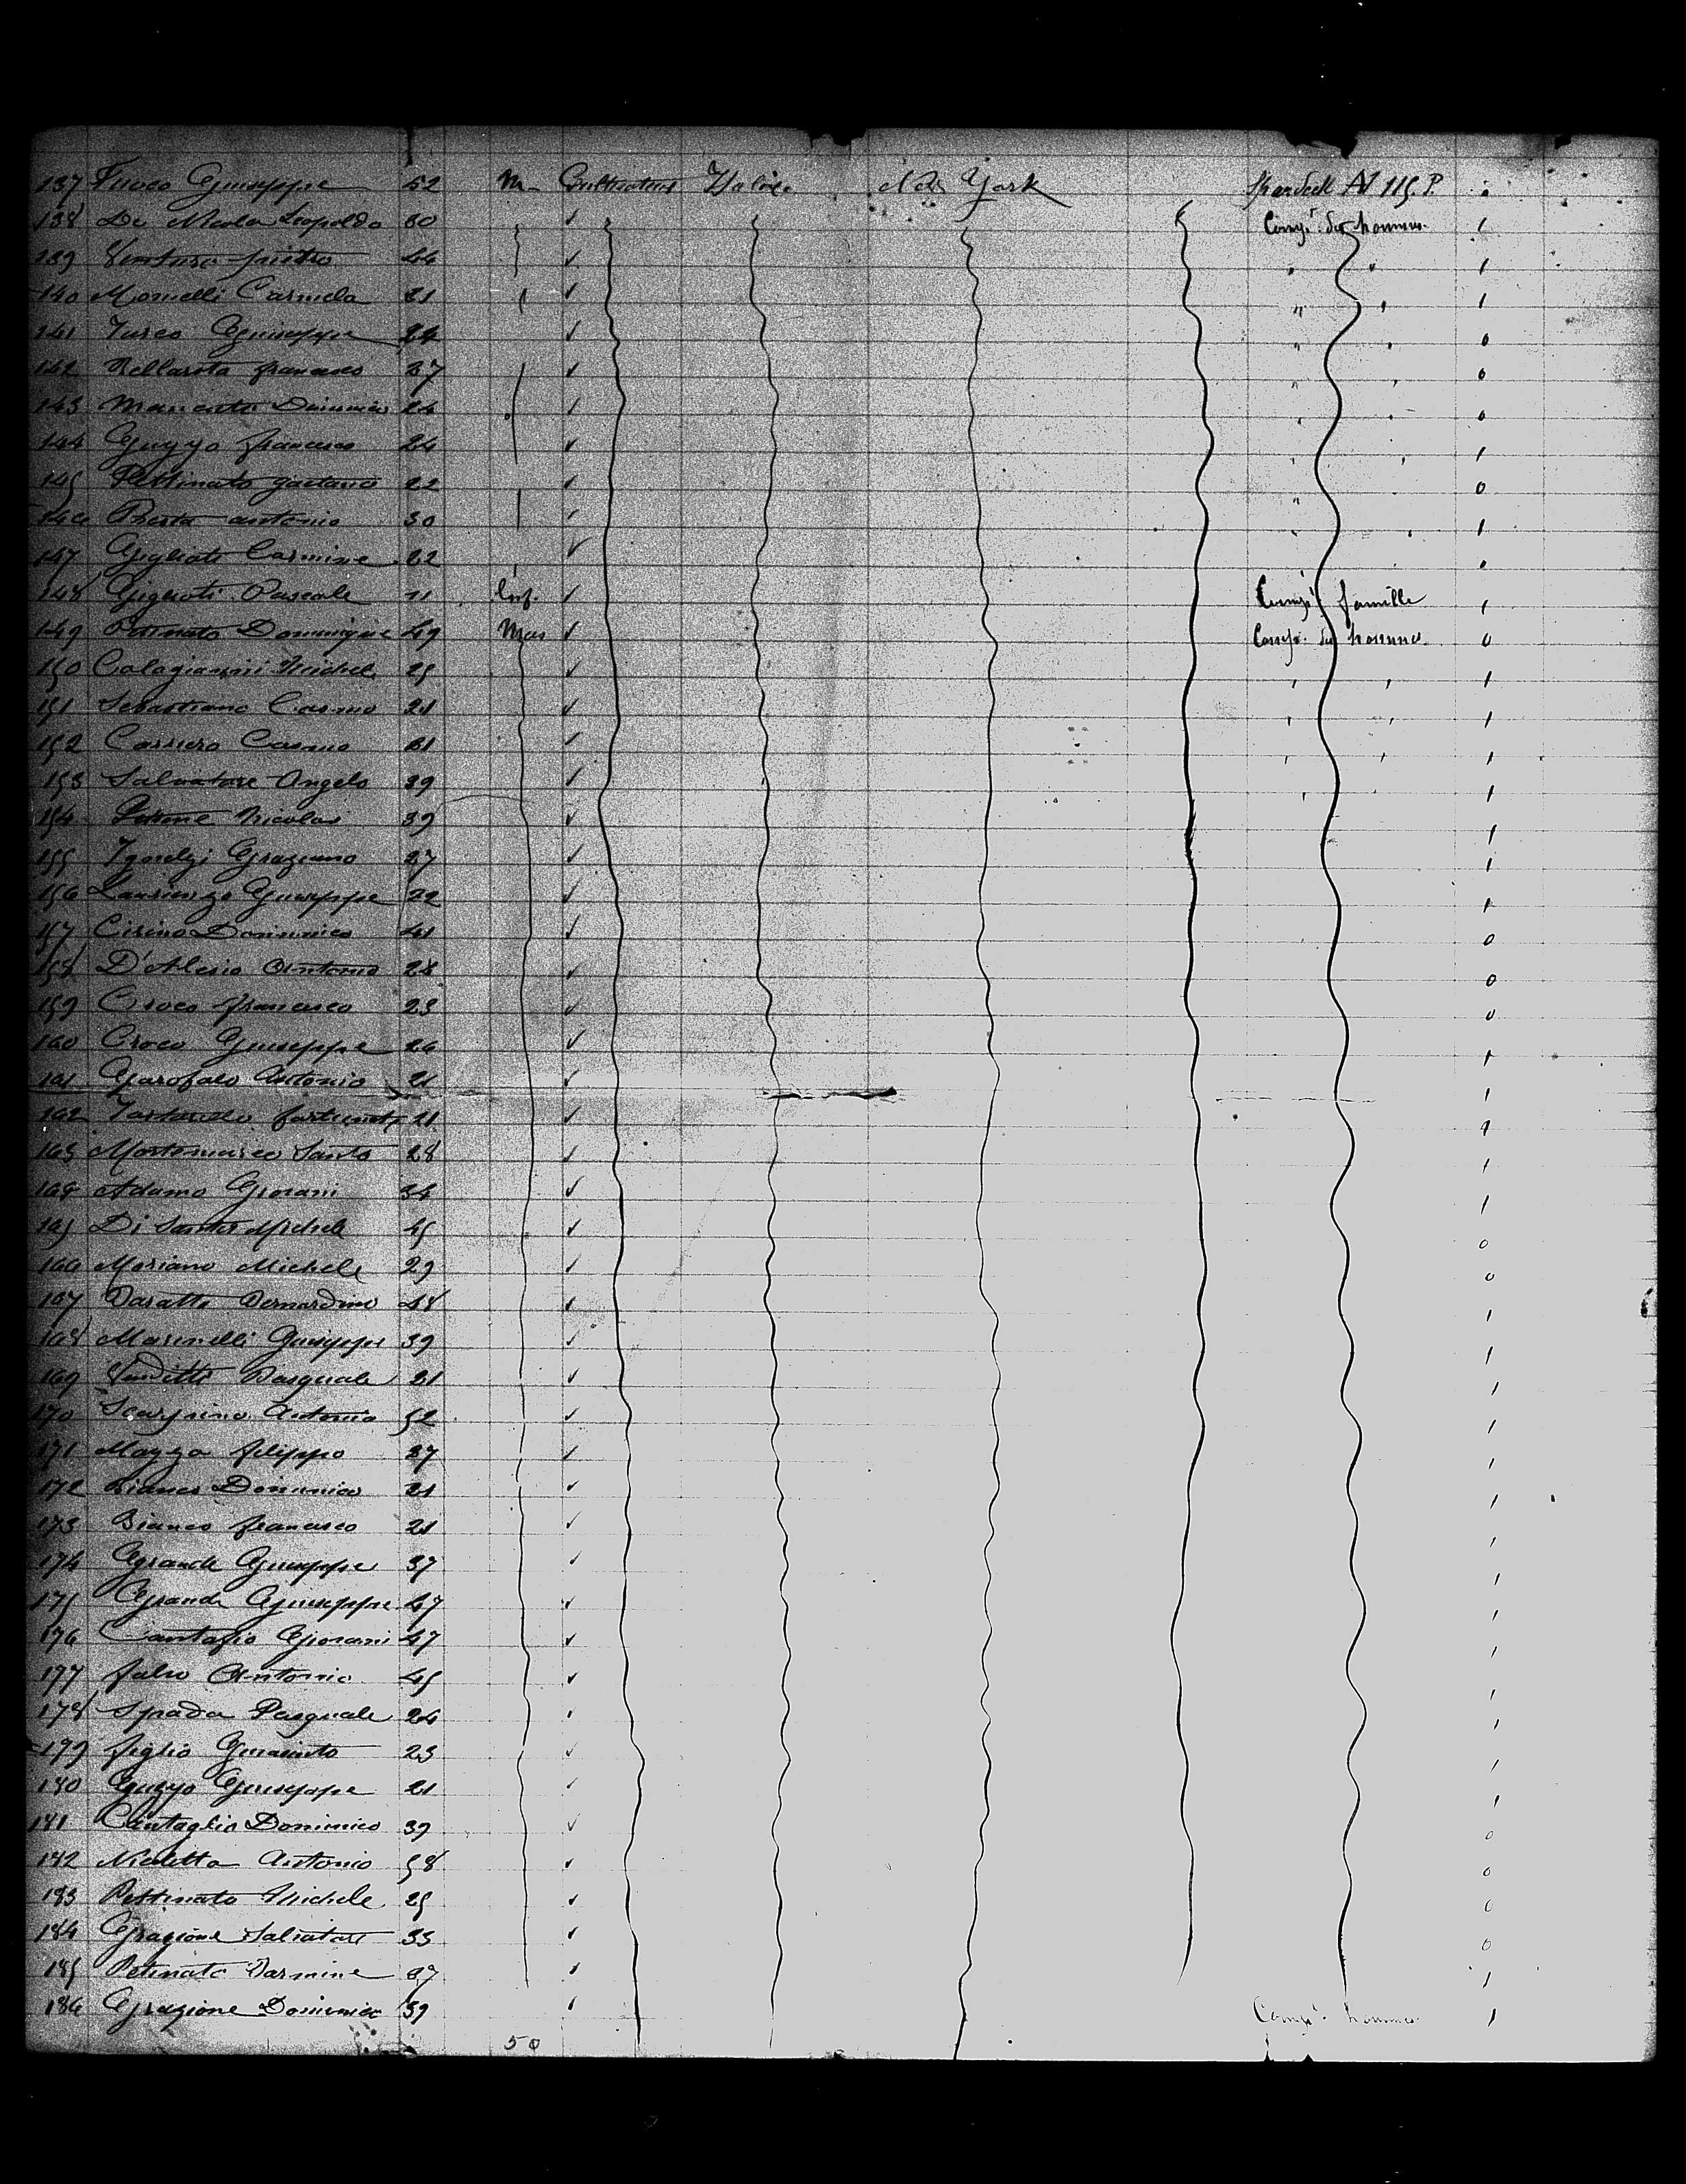 137 Fuoco Giuseppe 52 M Cultivateur Italie New York Spardeck AV 115 P. 0
138 De Nicola Leopoldo 30 Compt. des hommes 1
139 Ventura pietro 44 " " 1
140 Momelli Carmela 21 " " 1
141 Turco Giuseppe 24 " " 0
142 Bellarota francesco 27 " " 0
143 Mancuto Dominico 24 " " 0
144 Guzzo francesco 24 " " 1
145 Pettinato gaetano 22 " 0
146 Presta antonio 30 " " 1
147 Gigliati Carmine 32 " 0
148 Giglioti Pascale 11 Inf. Compt famille 1
149 Dominique 49 Mas Compt. des hommes 0
150 Calagianni Michele 25 " " 1
151 Sebastiano Cosmo 21 " " 1
152 Carriero Cosmo 31 " " 1
153 Salvatore Angelo 39 " 1
154 Nicolas 39 1
155 Graziano 27 1
156 Giuseppe 22 1
157 Cirino Dominico 41 0
158 D'Alesio Antonio 28 0
159 Croco francesco 23 0
160 Croco Giuseppe 26 1
161 Garofalo Antonio 21 1
162 21 1
163 Santo 28 1
164 Adamo Giovani 34 1
165 Di Santis Michele 45 0
166 Moriano Michele 29 0
167 Baratta Bernardino 48 1
168 Marinelli Giuseppe 39 1
169 Venditti Pasquale 21 1
170 Scarpino Antonio 52 1
171 Mazza filippo 37 1
172 Bianco Dominico 21 1
173 Bianco francesco 21 1
174 Grande Giuseppe 37 1
175 Grande Giuseppe 47 1
176 Cantafio Giovani 47 1
177 Antonio 45 1
178 Spada Pasquale 24 1
179 figlio 23 1
180 Guzzo Giuseppe 21 1
181 Cantaglio Dominico 39 0
182 Nicoletta Antonio 58 0
183 Pettinato Michele 25 0
184 Gragione Salvatore 33 0
185 Petinato Carmine 37 1
186 Gragione Dominico 39 Compt. hommes 1
50